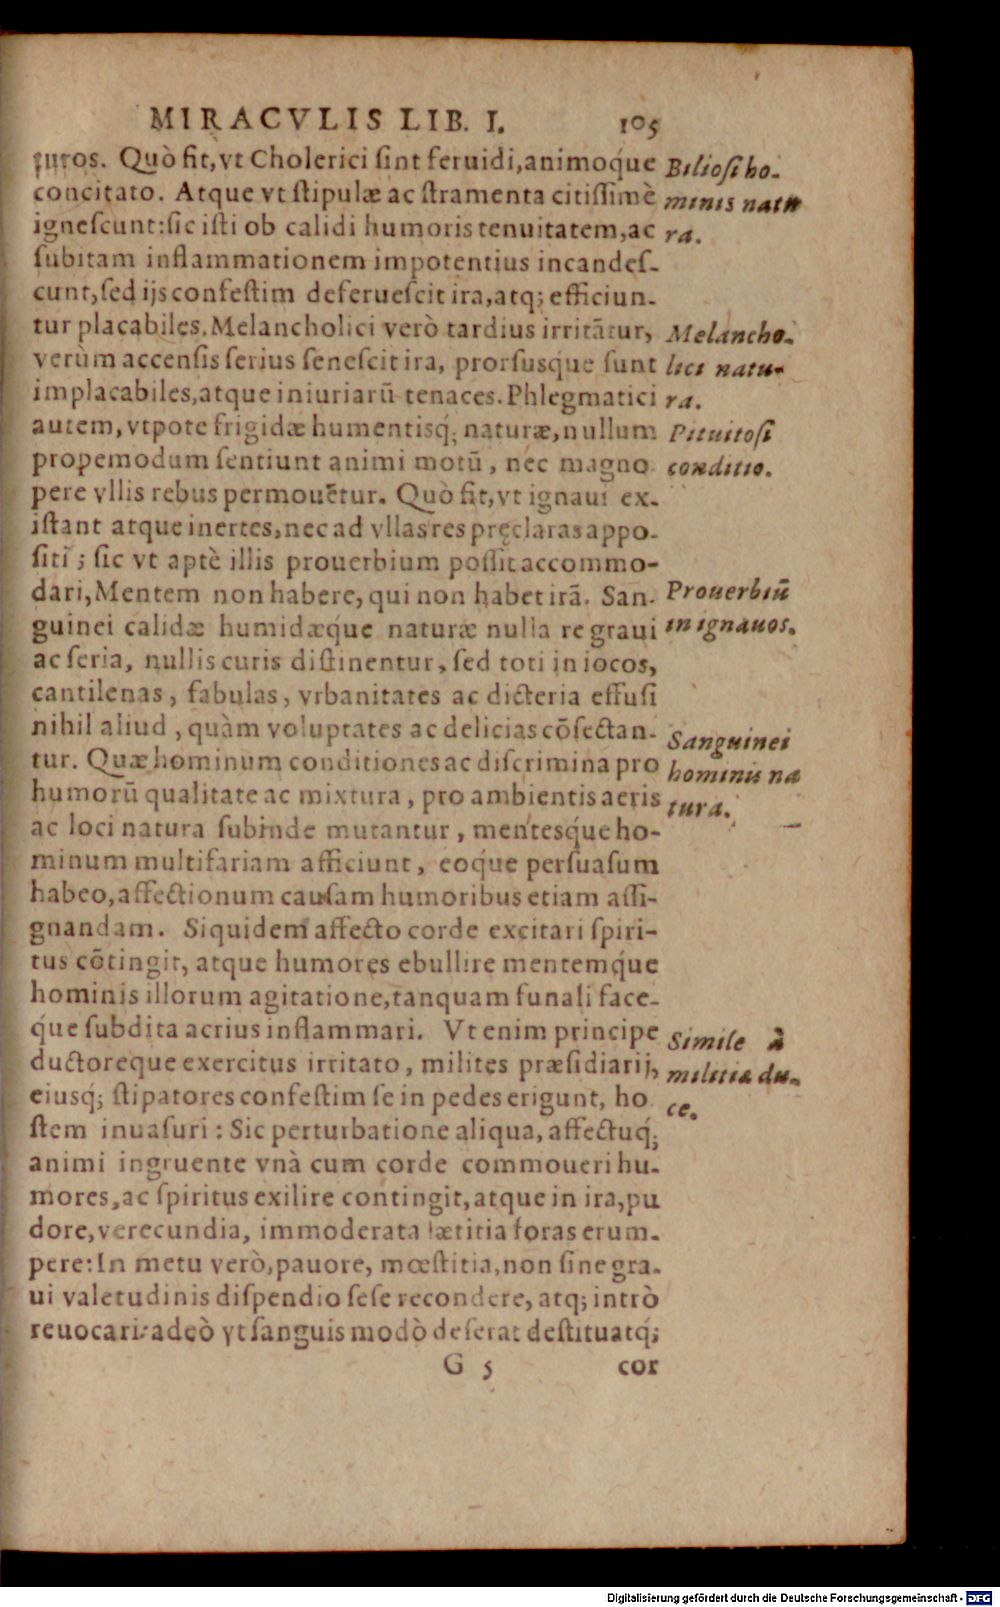 MIRACVLIS LIB. I. 105
turos. Quò fit, vt Cholerici sint feruidi, animoq́ue
concitato. Atque vt stipulæ ac stramenta citissimè
ignescunt: sic isti ob calidi humoris tenuitatem, ac
subitam inflammationem impotentius incandes-
cunt, sed ijs confestim deferuescit ira, atq; efficiun-
tur placabiles. Melancholici verò tardius irritãtur,
verùm accensis serius senescit ira, prorsusq́ue sunt
implacabiles, atque iniuriarũ tenaces. Phlegmatici
autem, vtpote frigidæ humentisq́; naturæ, nullum
propemodum sentiunt animi motũ, nec magno
pere vllis rebus permouẽtur. Quò fit, vt ignaui ex-
istant atque inertes, nec ad vllas res pręclaras appo-
siti; sic vt aptè illis prouerbium possit accommo-
dari, Mentem non habere, qui non habet irã. San-
guinei calidæ humidæq́ue naturæ nulla re graui
ac seria, nullis curis distinentur, sed toti in iocos,
cantilenas, fabulas, vrbanitates ac dicteria effusi
nihil aliud, quàm voluptates ac delicias cõsectan-
tur. Quæ hominum conditiones ac discrimina pro
humorũ qualitate ac mixtura, pro ambientis aeris
ac loci natura subinde mutantur, mentesq́ue ho-
minum multifariam afficiunt, eoq́ue persuasum
habeo, affectionum causam humoribus etiam assi-
gnandam. Siquidem affecto corde excitari spiri-
tus cõtingit, atque humores ebullire mentemq́ue
hominis illorum agitatione, tanquam funali face-
q́ue subdita acrius inflammari. Vt enim principe
ductoreque exercitus irritato, milites præsidiarij,
eiusq́; stipatores confestim se in pedes erigunt, ho
stem inuasuri: Sic perturbatione aliqua, affectuq́;
animi ingruente vnà cum corde commoueri hu-
mores, ac spiritus exilire contingit, atque in ira, pu
dore, verecundia, immoderata lætitia foras erum-
pere: In metu verò, pauore, mœstitia, non sine gra-
ui valetudinis dispendio sese recondere, atq; intrò
reuocari: adeò vt sanguis modò deserat destituatq́;
G 5 cor
Biliosi ho-
minis natu
ra.
Melancho-
lici natu-
ra.
Pituitosi
conditio.
Prouerbiũ
in ignauos.
Sanguinei
hominis na
tura.
Simile à
militiæ du-
ce.
Digitalisierung gefördert durch die Deutsche Forschungsgemeinschaft - DFG